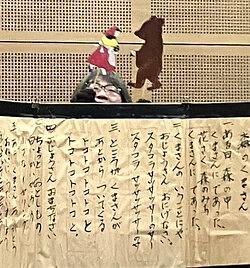 くまさん
一 ある日 森の中
くまさんに であった
花さく 森のみち
くまさんに であった
二 くまさんの いうことにゃ
おじょうさん おにげなさい
スタコラ サッササッサのサ
スタコラ サッササッサのサ
三 ところが くまさんが
あとから ついてくる
トコトコ トコトコと
トコトコ トコトコと
四 おじょうさん おまちなさい
ちょっと おとしもの